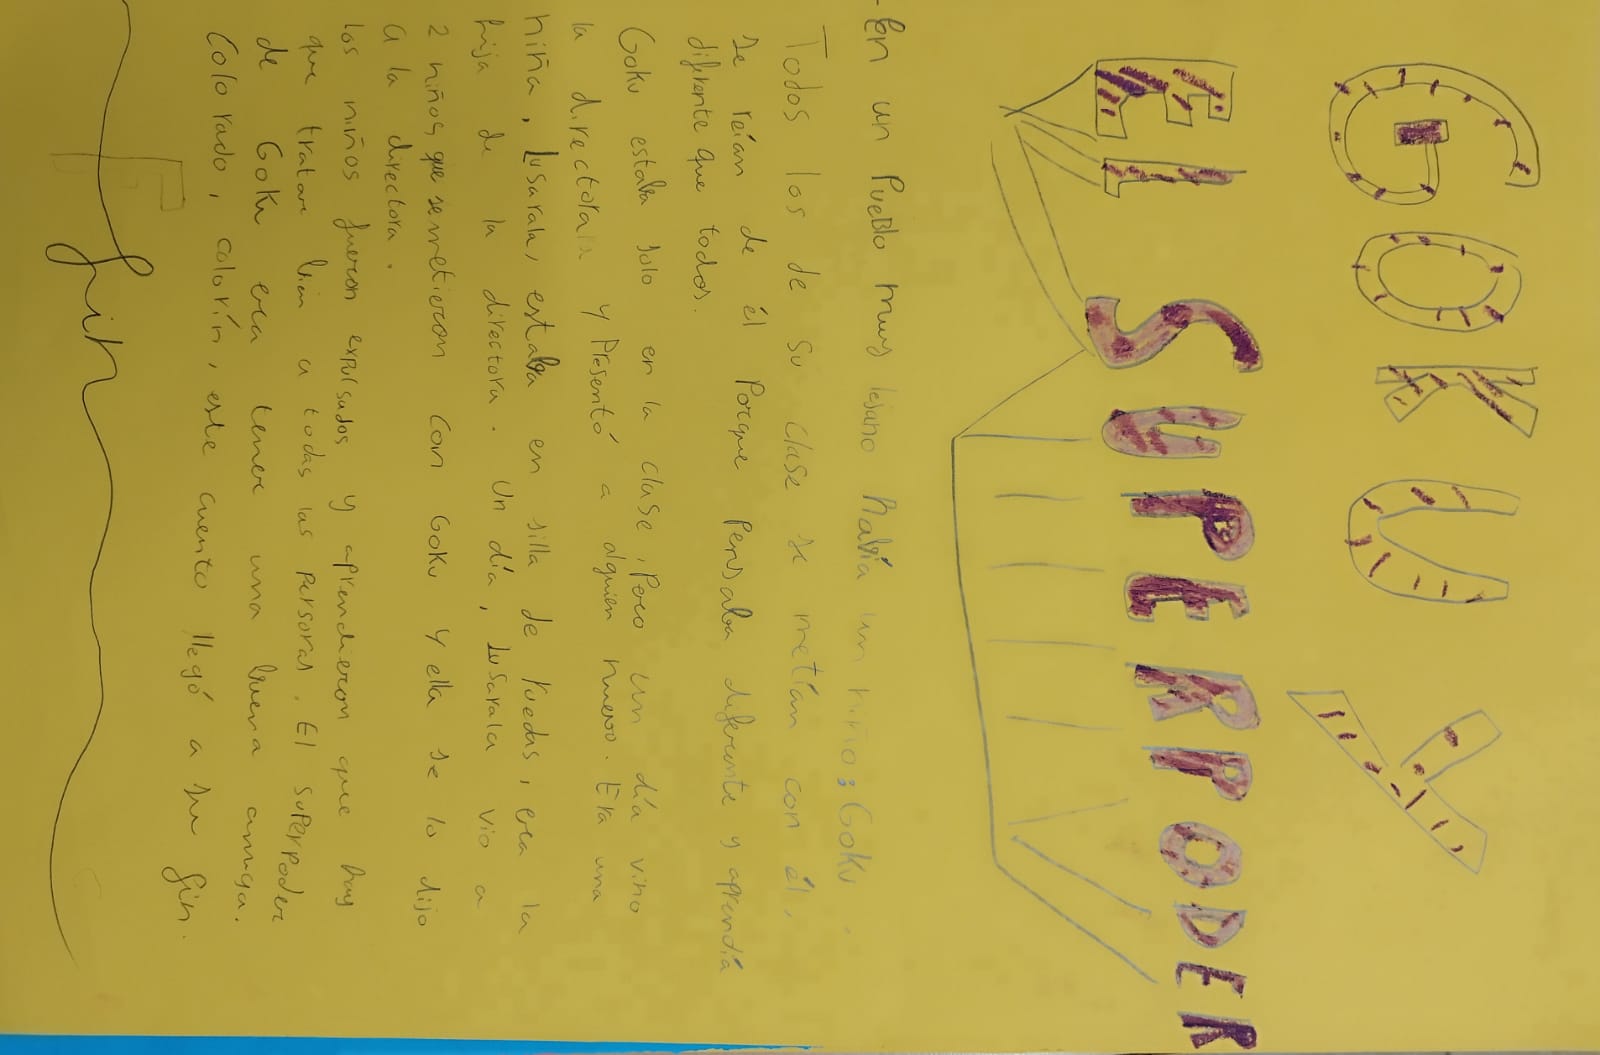 GOKU Y
EL SUPERPODER
-En un Pueblo muy lejano había un niño: Goku.
Todos los de su clase se metían con él,
se reían de él Porque Pensaba diferente y aprendía
difirente que todos.
Goku estaba solo en la clase, Pero un día vino
la directora y Presentó a alguien nuevo. Era una
niña, Lusarala, estaba en silla de ruedas, era la
hija de la directora. Un día, Lusarala vio a
2 niños que se metieron con Goku y ella se lo dijo
a la directora.
los niños fueron expulsados y aprendieron que hay
que tratar bien a todas las Personas. El superpoder
de Goku era tener una buena amiga.
Colorado, colorín, este cuento llegó a su fin.
Fin